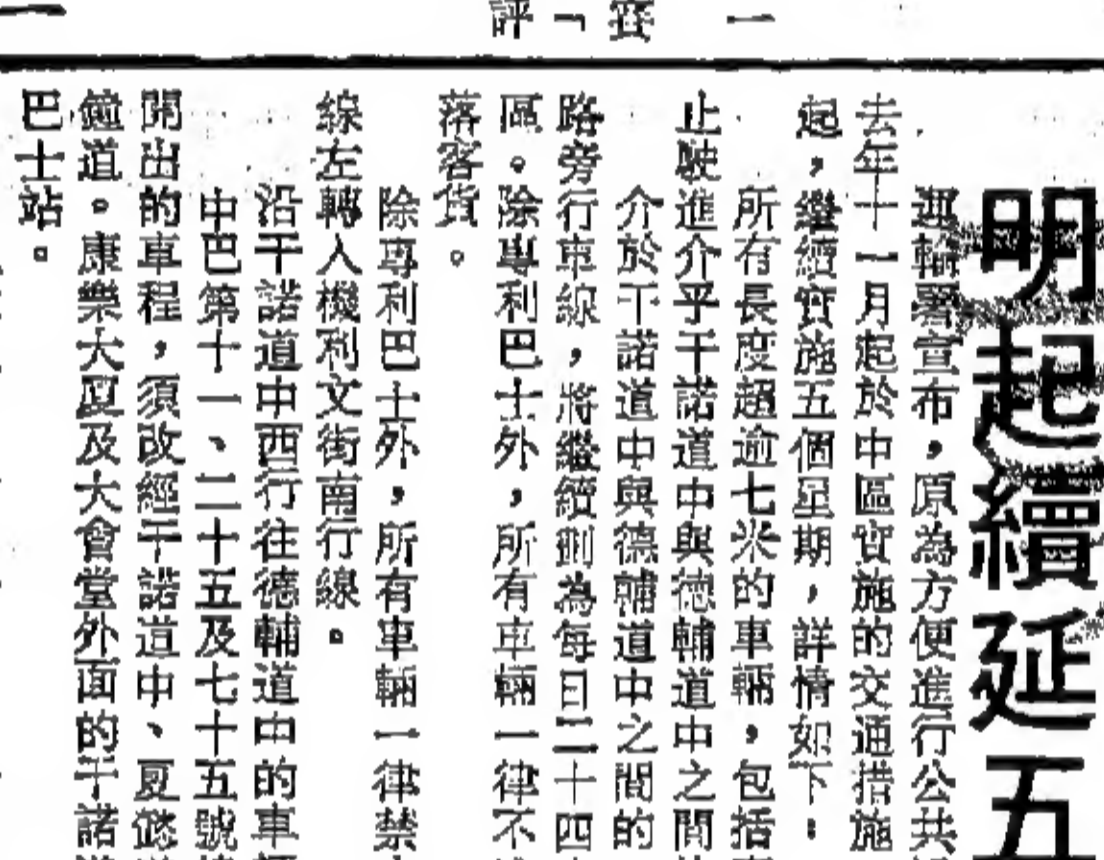 一 賽「評
明起續延五
運輸署宣布，原為方便進行公共
去年十一月起於中區實施的交通措施
起，繼續實施五個星期，詳情如下：
所有長度超逾七米的車輛，包括
止駛進介乎干諾道中與德輔道中之間
介於干諾道中與德輔道中之間的
路旁行車線，將繼續劃為每日二十四
區。除專利巴士外，所有車輛一律不
落客貨。
除專利巴士外，所有車輛一律禁
線左轉入機利文街南行線。
沿干諾道中西行往德輔道中的車
中巴第十一、二十五及七十五號
開出的車程，須改經干諾道中、夏慤
鐘道。康樂大廈及大會堂外面的干諾
巴士站。